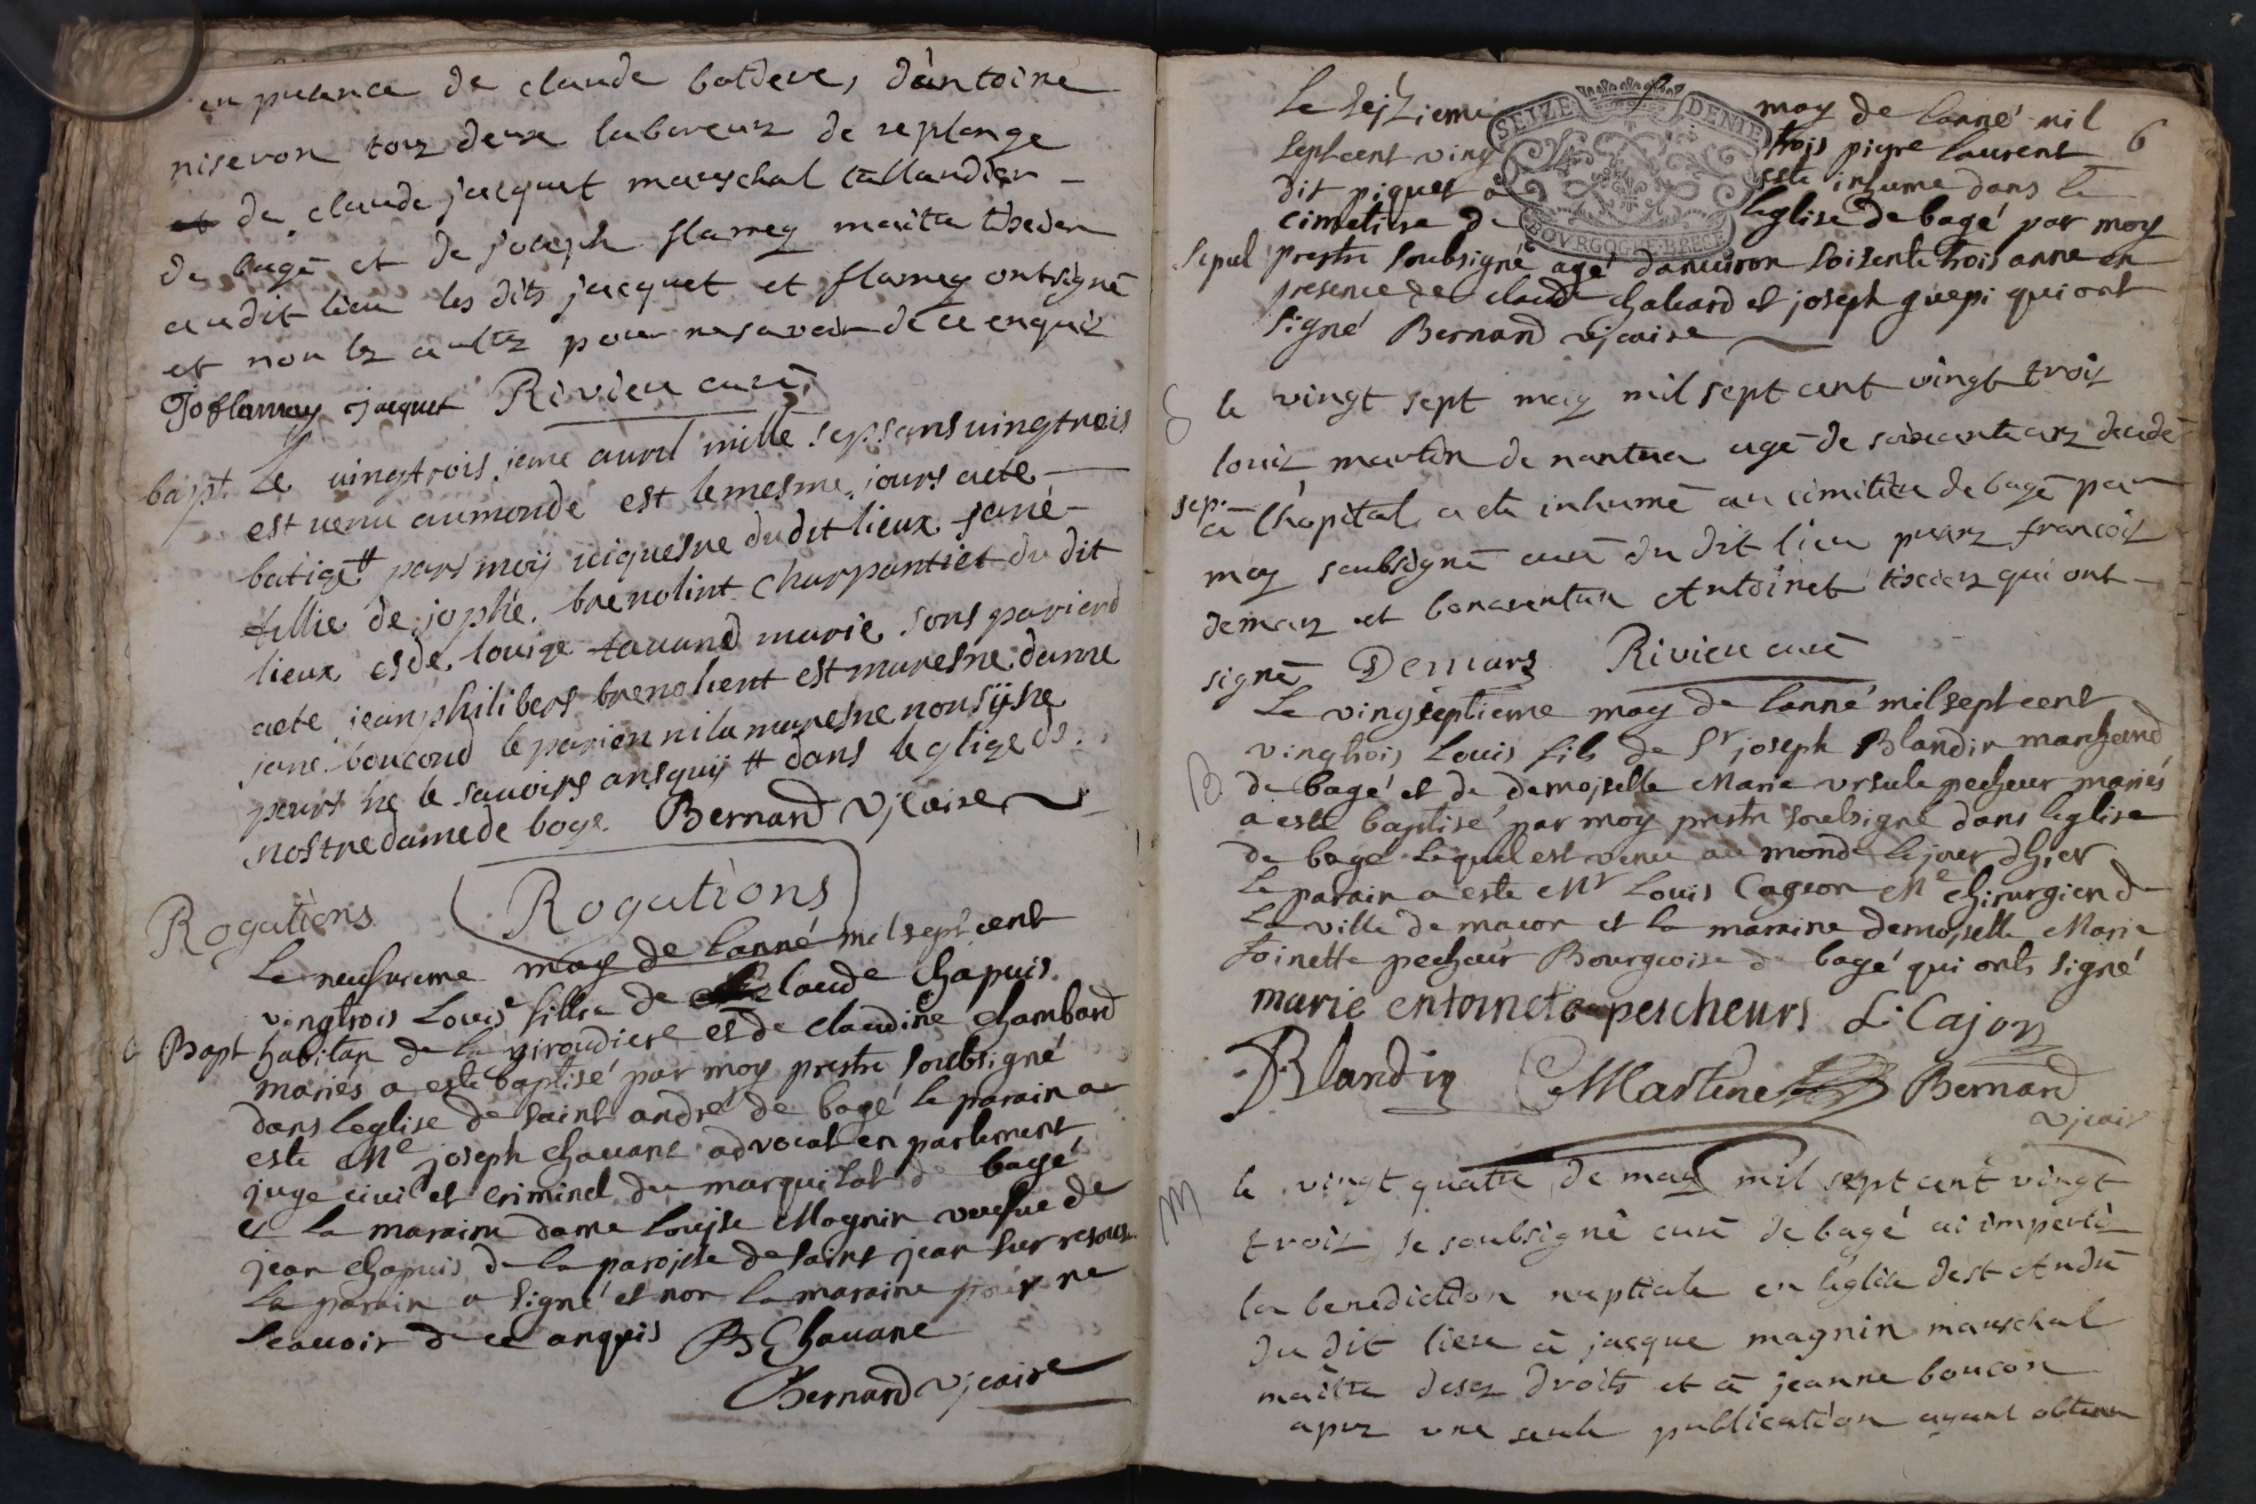 en presence de claude boldeve, dantoine
niseron touz deux laboureurz de replonge
et de claude jacquet mareschal tallandier
de bagé et de joseph flamey maitre tixier
audit lieu les dits jacquet et flamey ont signé
et non lez aultrz pour ne savoir de ce enquiz
Jo flamey jacquet Rivieu curé
bapt. Le vingtrois ieme avril mille sepsans vingtrois
est venu aumonde est lemesme jours aete
batige # pars moÿ viquesre dudit lieux jané
fillie de jophe brenolint charpantiet du dit
lieux esde louige tavand marie sons pariend
aete jean philibers brenolient est maresne danne
jané boucond le parien ni la maresne non sÿsne
pours ne le savoirs ansquÿ # dans leglige de
nostredamede boge Bernard vjcaire
Rogations
Rogations
Le neufvieme may de lanné mil sept cent
vingtrois Louise fillie de claude Chapuis
Bapt habitan de la giroudiere et de claudine Chambard
mariés a este baptisé par moy prestre soubsigné
dans leglise de saint andré de bagé le parain a
este Me joseph Chavane advocat en parlement
juge civil et criminel du marquisat de bagé
et la maraine dame Louise Magnin veufve de
jean chapuis de la paroisse de saint jean sur resouse
Le parain a signé et non la maraine pour ne
scavoir de ce anquis B Chavane
Bernard vjcaire
Le seizieme may de lanné mil
SEIZE DENIE
BOVRGOGNE BRECE
6
sept cent ving trois pierre laurent
dit piquet a esté inhumé dans le
cimetiere de leglise de bagé par moy
sepul prestre soubsigné agé danviron soisente trois anne en
presence de claude chaleard et joseph guepi qui ont
signé Bernard vjcaire
S le vingt sept may mil sept cent vingt troiz
louiz martin de nantua agé de soixante anz decedé
sep. a lhopital a ete inhumé au cimitiere de bagé par
moy soubsigné curé du dit lieu presnz francoiz
demarz et bonaventure Antoinet tixierz qui ont
signé Demars Rivieu curé
Le vingseptieme may de lanné mil sept cent
vingtrois Louis fils de Sr joseph Blandin marchand
B de bagé et de demoiselle Marie ursule pecheur mariés
a esté baptisé par moy prestre soubsigné dans leglise
de bagé lequel est venu au monde le jour dhier
Le parain a este Mr Louis Cageon Me chirurgien de
La ville de macon et la maraine demoiselle Marie
toinette pecheur Bourgeoise de bagé qui onts signé
marie entoineta pescheurs L. Cajon
Blandin Martine Bernard
vjcair
M le vingt quatre de may mil sept cent vingt
troiz je soubsigné curé de bagé ai imperti
la benediction nuptiale en leglise de st André
du dit lieu à jacque magnin mareschal
maitre desez droits et à jeanne boucon
aprez une seule publication ayant obtenu